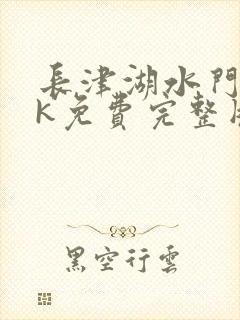 長津湖水門
K免費完整
黑空行雲